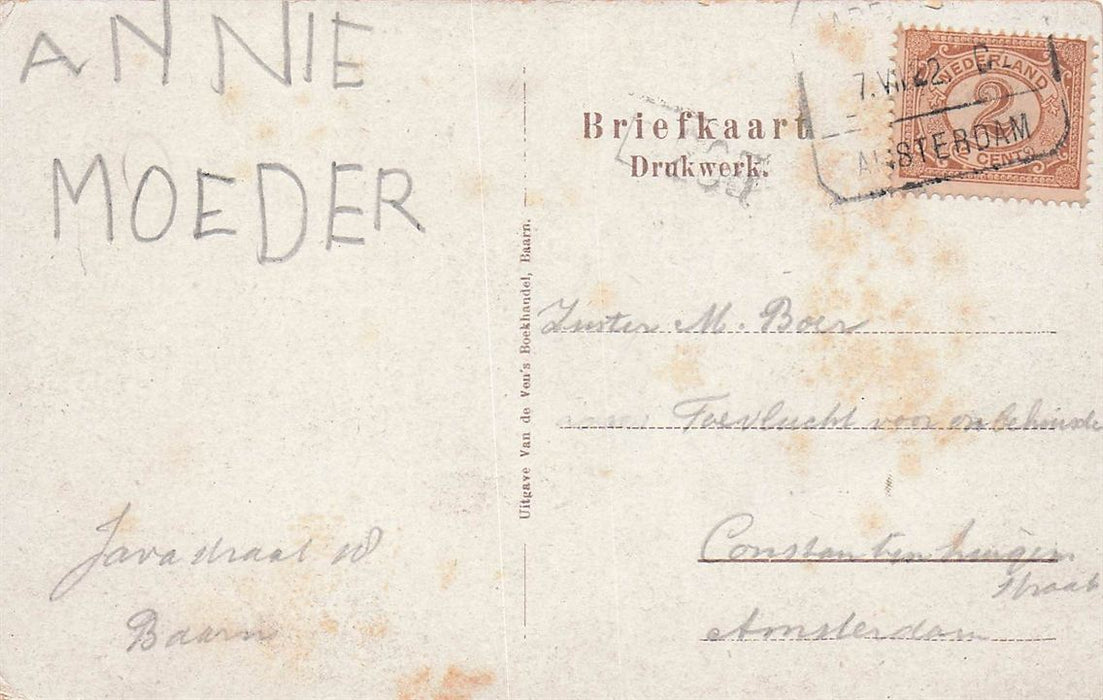 ANNIE
MOEDER
Javastraat 18
Baarn
Uitgave Van de Ven's Boekhandel, Baarn.
Briefkaart
Drukwerk.
NEDERLAND
2
CENT
7.VII.22
AMSTERDAM
Zuster M. Boer
Toevlucht voor onbehuisde
Constantijn huigen
straat
Amsterdam